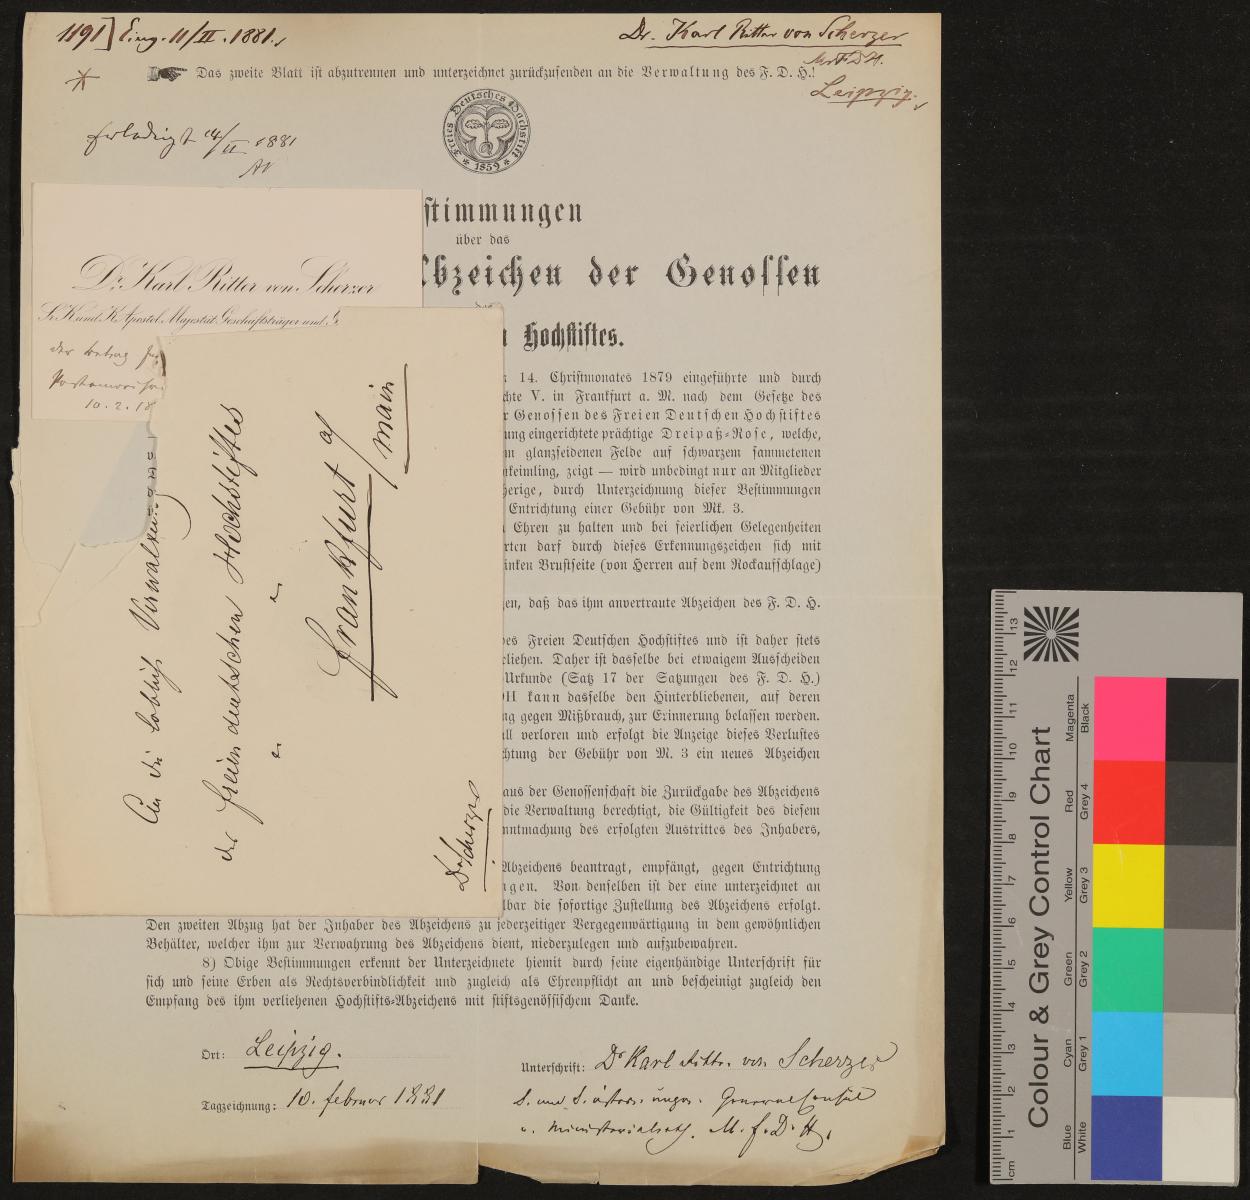 1191] Eing. 11/II. 1881.
Dr. Karl Ritter von Scherzer
M. F. D. H.
Leipzig.
Das zweite Blatt ist abzutrennen und unterzeichnet zurückzusenden an die Verwaltung des F. D. H.!
Erledigt 14/II 1881
Freies Deutsches Hochstift
1859
stimmungen
über das
bzeichen der Genossen
Hochstiftes.
14. Christmonates 1879 eingeführte und durch
chte V. in Frankfurt a. M. nach dem Gesetze des
r Genossen des Freien Deutschen Hochstiftes
ung eingerichtete prächtige Dreipaß-Rose, welche,
m glanzseidenen Felde auf schwarzem sammetenen
keimling, zeigt — wird unbedingt nur an Mitglieder
herige, durch Unterzeichnung dieser Bestimmungen
Entrichtung einer Gebühr von Mk. 3.
Ehren zu halten und bei feierlichen Gelegenheiten
rten darf durch dieses Erkennungszeichen sich mit
inken Brustseite (von Herren auf dem Rockaufschlage)
en, daß das ihm anvertraute Abzeichen des F. D. H.
es Freien Deutschen Hochstiftes und ist daher stets
liehen. Daher ist dasselbe bei etwaigem Ausscheiden
Urkunde (Satz 17 der Satzungen des F. D. H.)
H kann dasselbe den Hinterbliebenen, auf deren
ng gegen Mißbrauch, zur Erinnerung belassen werden.
ll verloren und erfolgt die Anzeige dieses Verlustes
chtung der Gebühr von M. 3 ein neues Abzeichen
aus der Genossenschaft die Zurückgabe des Abzeichens
die Verwaltung berechtigt, die Gültigkeit des diesem
nntmachung des erfolgten Austrittes des Inhabers,
Abzeichens beantragt, empfängt, gegen Entrichtung
gen. Von denselben ist der eine unterzeichnet an
lbar die sofortige Zustellung des Abzeichens erfolgt.
Den zweiten Abzug hat der Inhaber des Abzeichens zu jederzeitiger Vergegenwärtigung in dem gewöhnlichen
Behälter, welcher ihm zur Verwahrung des Abzeichens dient, niederzulegen und aufzubewahren.
8) Obige Bestimmungen erkennt der Unterzeichnete hiemit durch seine eigenhändige Unterschrift für
sich und seine Erben als Rechtsverbindlichkeit und zugleich als Ehrenpflicht an und bescheinigt zugleich den
Empfang des ihm verliehenen Hochstifts-Abzeichens mit stiftsgenössischem Danke.
Ort: Leipzig.
Unterschrift: Dr Karl Rittr. von Scherzer
Tagzeichnung: 10. februar 1881
K. und K. österr. ungar. Generalconsul
u. Ministerialrath. M. f. D. H.
Dr. Karl Ritter von Scherzer
Sr. K. und K. Apostol. Majestät Geschäftsträger und G
der betrag
10. 2. 18
An die löbliche Verwaltung
der freien deutschen Hochstiftes
Frankfurt a/
Main
Dr Scherzer
Colour & Grey Control Chart
Blue Cyan Green Yellow Red Magenta
White Grey 1 Grey 2 Grey 3 Grey 4 Black
cm 1 2 3 4 5 6 7 8 9 10 11 12 13